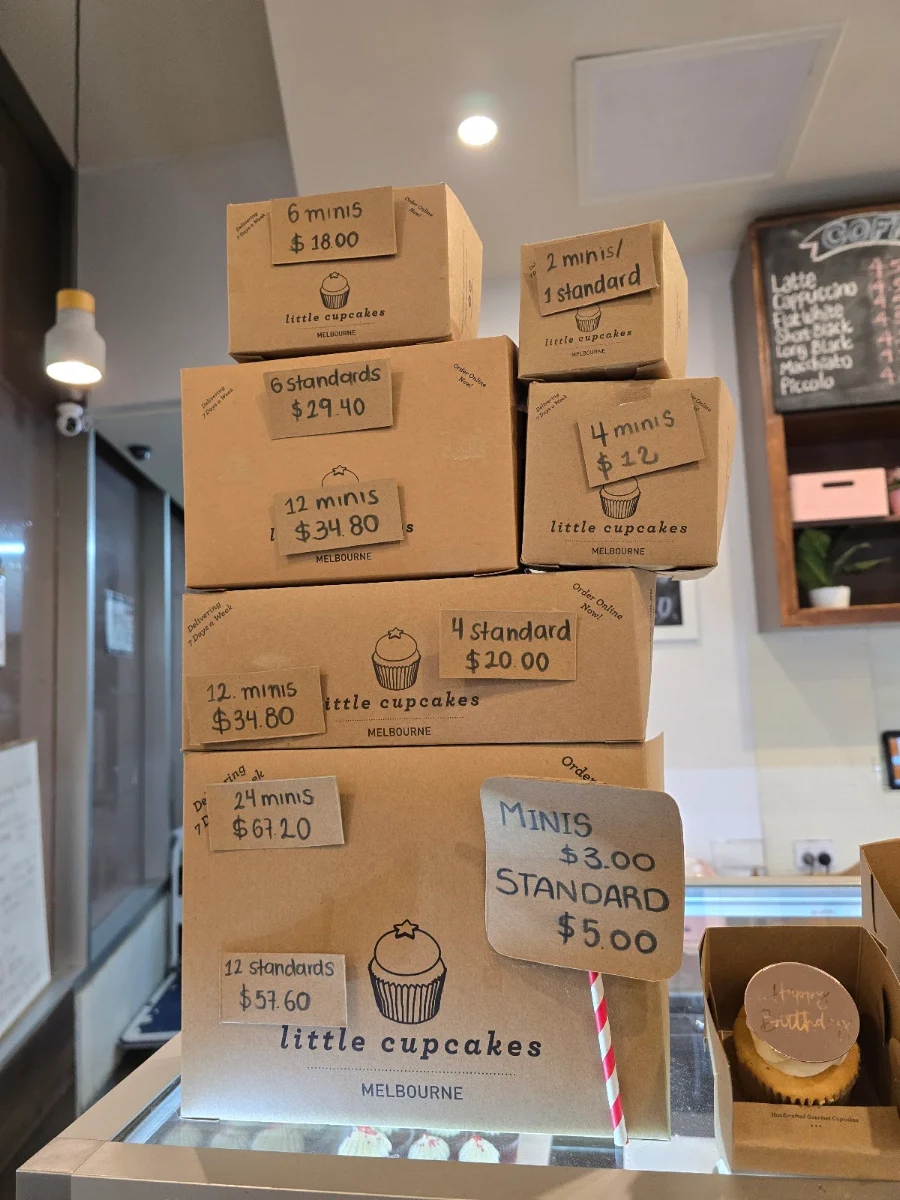 Delivering
7 Days a Week
6 minis
$18.00
Order Online
Now!
little cupcakes
MELBOURNE
2 minis/
1 standard
little cupcakes
MELBOURNE
Delivering
7 Days a Week
6 standards
$29.40
Order Online
Now!
12 minis
$34.80
l
s
MELBOURNE
Delivering
4 minis
$12
Online
little cupcakes
MELBOURNE
Delivering
7 Days a Week
4 standard
$20.00
Order Online
Now!
12. minis
$34.80
ittle cupcakes
MELBOURNE
24 minis
$67.20
Order
MINIS
$3.00
STANDARD
$5.00
12 standards
$57.60
little cupcakes
MELBOURNE
Latte
Cappuccino
Flat White
Short Black
Long Black
Macchiato
Piccolo
Happy
Birthday
Handcrafted Gourmet Cupcakes